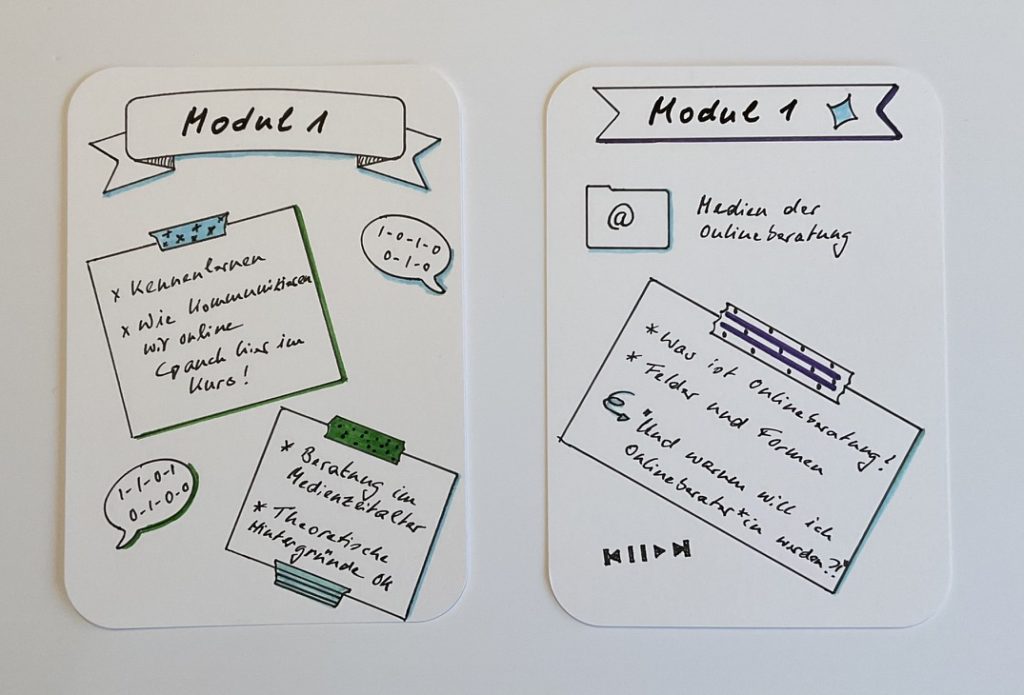 Modul 1
1-0-1-0
0-1-0
x Kennenlernen
x Wie kommunizieren
wir online
(auch hier im
Kurs!
1-1-0-1
0-1-0-0
* Beratung im
Medienzeitalter
* Theoretische
Hintergründe OK
Modul 1
@
Medien der
Onlineberatung
* Was ist Onlineberatung!
* Felder und Formen
"Und warum will ich
Onlineberater*in werden?!"